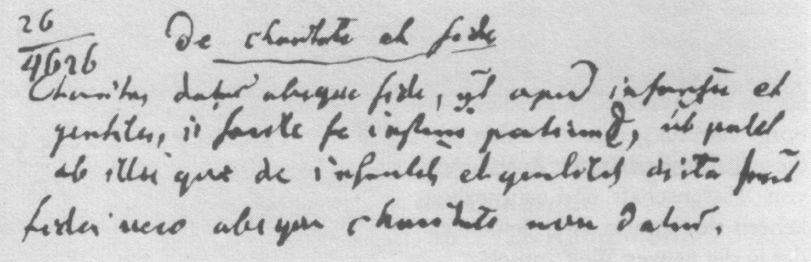 26
4626
De charitate et fide
Charitas datur absque fide, ut apud infantes et
gentiles, ii facile se instrui patiuntur, ut patet
ab illis quae de infantibus et gentilibus dicta sunt
fides vero absque charitate non datur.